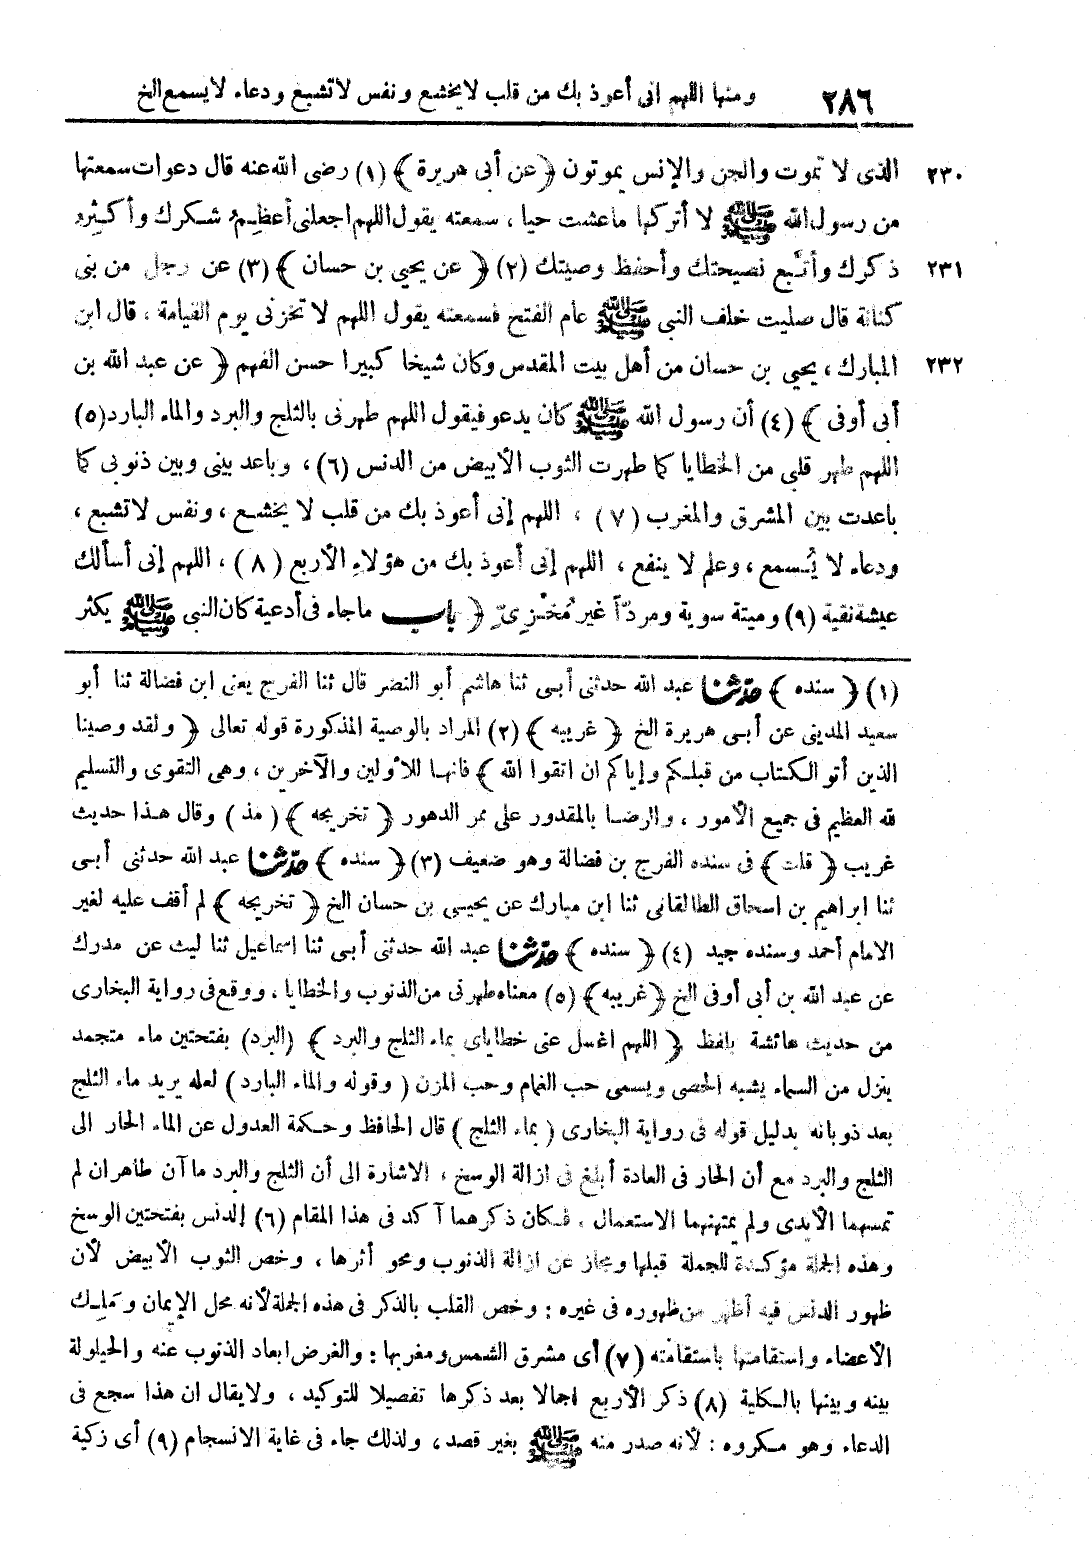 ٢٨٦ ومنها اللهم انى أعوذ بك من قلب لا يخشع ونفس لا تشبع ودعاء لا يسمع الخ
٢٣٠ الذى لا تموت والجن والإنس يموتون ﴿ عن أبى هريرة ﴾ (١) رضى الله عنه قال دعوات سمعتها
من رسول الله ﷺ لا أتركها ما عشت حيا ، سمعته يقول اللهم اجعلنى أعظم شكرك وأكثر
٢٣١ ذكرك وأتَّبع نصيحتك وأحفظ وصيتك (٢) ﴿ عن يحيى بن حسان ﴾ (٣) عن رجل من بنى
كنانة قال صليت خلف النبى ﷺ عام الفتح فسمعته يقول اللهم لا تخزنى يوم القيامة ، قال ابن
٢٣٢ المبارك ، يحيى بن حسان من أهل بيت المقدس وكان شيخا كبيرا حسن الفهم ﴿ عن عبد الله بن
أبى أوفى ﴾ (٤) أن رسول الله ﷺ كان يدعو فيقول اللهم طهرنى بالثلج والبرد والماء البارد (٥)
اللهم طهر قلبى من الخطايا كما طهرت الثوب الأبيض من الدنس (٦) ، وباعد بينى وبين ذنوبى كما
باعدت بين المشرق والمغرب (٧) ، اللهم إنى أعوذ بك من قلب لا يخشع ، ونفس لا تشبع ،
ودعاء لا يُسمع ، وعلم لا ينفع ، اللهم إنى أعوذ بك من هؤلاء الأربع (٨) ، اللهم إنى أسألك
عيشة نقية (٩) وميتة سوية ومردّاً غير مُخْزِىّ ﴿ باب ما جاء فى أدعية كان النبى ﷺ يكثر
(١) ﴿ سنده ﴾ حدّثنا عبد الله حدثنى أبى ثنا هاشم أبو النضر قال ثنا الفرج يعنى ابن فضالة ثنا أبو
سعيد المدينى عن أبى هريرة الخ ﴿ غريبه ﴾ (٢) المراد بالوصية المذكورة قوله تعالى ﴿ ولقد وصينا
الذين أتو الكتاب من قبلكم وإياكم ان اتقوا الله ﴾ فانها للأولين والآخرين ، وهى التقوى والتسليم
لله العظيم فى جميع الأمور ، والرضا بالمقدور على ممر الدهور ﴿ تخريجه ﴾ (مذ) وقال هذا حديث
غريب ﴿ قلت ﴾ فى سنده الفرج بن فضالة وهو ضعيف (٣) ﴿ سنده ﴾ حدّثنا عبد الله حدثنى أبى
ثنا ابراهيم بن اسحاق الطالقانى ثنا ابن مبارك عن يحيى بن حسان الخ ﴿ تخريجه ﴾ لم أقف عليه لغير
الامام أحمد وسنده جيد (٤) ﴿ سنده ﴾ حدّثنا عبد الله حدثنى أبى ثنا اسماعيل ثنا ليث عن مدرك
عن عبد الله بن أبى أوفى الخ ﴿ غريبه ﴾ (٥) معناه طهرنى من الذنوب والخطايا ، ووقع فى رواية البخارى
من حديث عائشة بلفظ ﴿ اللهم اغسل عنى خطاياى بماء الثلج والبرد ﴾ (البرد) بفتحتين ماء متجمد
ينزل من السماء يشبه الحصى ويسمى حب الغمام وحب المزن (وقوله والماء البارد) لعله يريد ماء الثلج
بعد ذوبانه بدليل قوله فى رواية البخارى (بماء الثلج) قال الحافظ وحكمة العدول عن الماء الحار الى
الثلج والبرد مع أن الحار فى العادة أبلغ فى ازالة الوسخ ، الاشارة الى أن الثلج والبرد ماآن طاهران لم
تمسهما الأيدى ولم يمتهنهما الاستعمال ، فكان ذكرهما آكد فى هذا المقام (٦) الدنس بفتحتين الوسخ
وهذه الجملة مؤكدة للجملة قبلها ومجاز عن ازالة الذنوب ومحو أثرها ، وخص الثوب الأبيض لأن
ظهور الدنس فيه أظهر من ظهوره فى غيره : وخص القلب بالذكر فى هذه الجملة لأنه محل الإيمان وملك
الأعضاء واستقامتها باستقامته (٧) أى مشرق الشمس ومغربها : والغرض ابعاد الذنوب عنه والحيلولة
بينه وبينها بالكلية (٨) ذكر الأربع اجمالا بعد ذكرها تفصيلا للتوكيد ، ولا يقال ان هذا سجع فى
الدعاء وهو مكروه : لأنه صدر منه ﷺ بغير قصد ، ولذلك جاء فى غاية الانسجام (٩) أى زكية